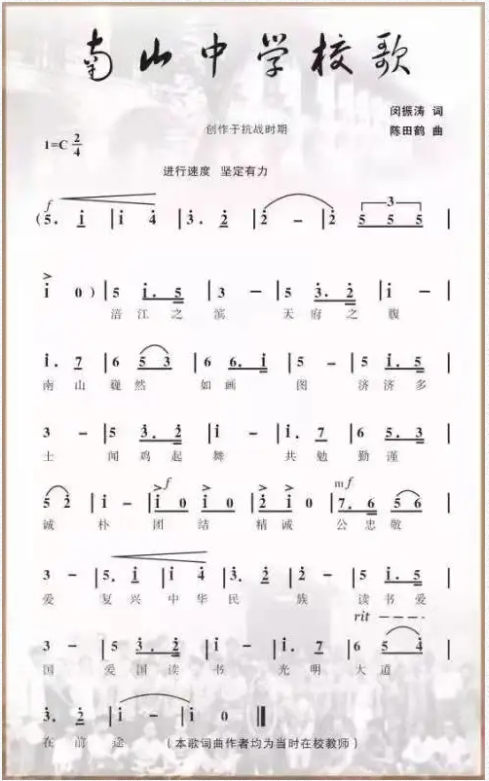 南山中学校歌
闵振涛 词
创作于抗战时期
陈田鹤 曲
1=C 2/4
进行速度 坚定有力
f
3
(5. i̇ | i̇ 4̇ | 3̇. 2̇ | 2̇ - | 2̇ 5 5 5 |
i̇ 0 ) | 5 i̇. 5 | 3 - | 5 3̇. 2̇ | i̇ - |
涪 江 之 滨 天 府 之 腹
i̇. 7 | 6 5 3 | 6 6. i̇ | 5 - | 5 i̇. 5 |
南 山 巍 然 如 画 图 济 济 多
3 - | 5 3̇. 2̇ | i̇ - | i̇. 7 | 6 5. 3 |
士 闻 鸡 起 舞 共 勉 勤 谨
f mf
5 2̇ | i̇ - | i̇ 0 i̇ 0 | 2̇ 0 i̇ 0 | 7. 6 5 6 |
诚 朴 团 结 精 诚 公 忠 敬
3 - | 5. i̇ | i̇ 4̇ | 3̇. 2̇ | 2̇ - | 5 i̇. 5 |
爱 复 兴 中 华 民 族 读 书 爱
rit
3 - | 5 3̇. 2̇ | i̇ - | i̇. 7 | 6 5 4̇ |
国 爱 国 读 书 光 明 大 道
3̇. 2̇ | i̇ - | i̇ 0 ‖
在 前 途 （本歌词曲作者均为当时在校教师）